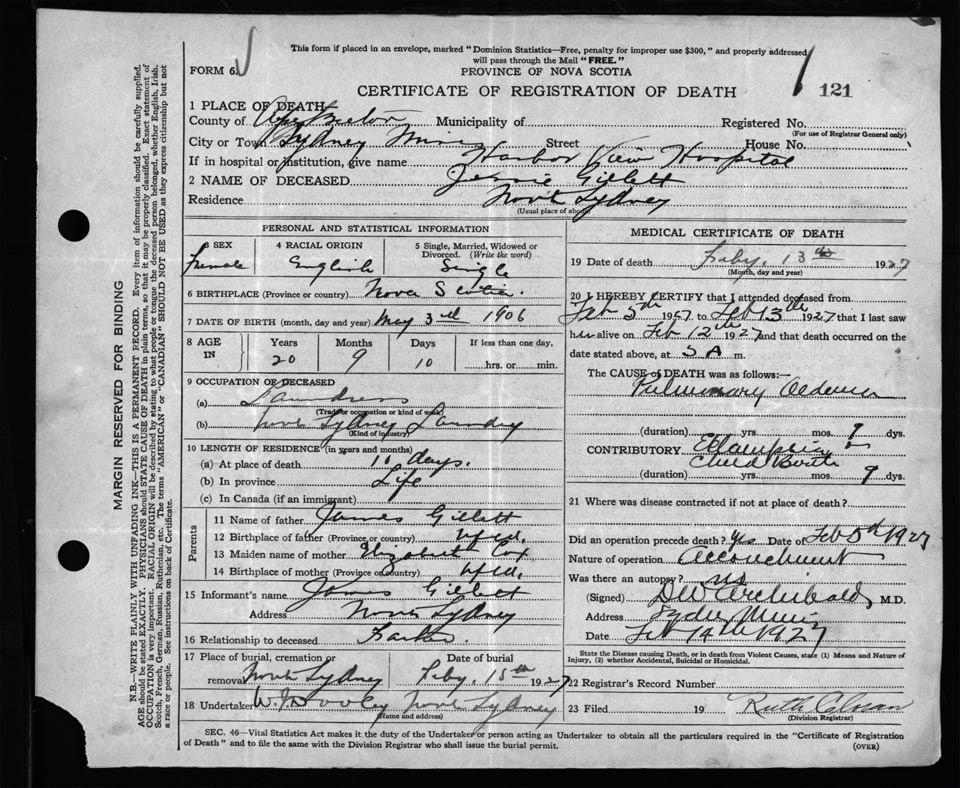 This form if placed in an envelope, marked "Dominion Statistics—Free, penalty for improper use $300," and properly addressed
will pass through the Mail "FREE."
FORM 6.
PROVINCE OF NOVA SCOTIA
CERTIFICATE OF REGISTRATION OF DEATH
121
1 PLACE OF DEATH
County of Cape Breton Municipality of Registered No.
(For use of Registrar General only)
City or Town Sydney Mines Street House No.
If in hospital or institution, give name Harbor View Hospital
2 NAME OF DECEASED Jessie Gillett
Residence North Sydney
(Usual place of abode)
PERSONAL AND STATISTICAL INFORMATION
3 SEX 4 RACIAL ORIGIN 5 Single, Married, Widowed or Divorced. (Write the word)
Female English Single
6 BIRTHPLACE (Province or country) Nova Scotia
7 DATE OF BIRTH (month, day and year) May 3rd 1906
8 AGE IN Years Months Days If less than one day,
20 9 10 hrs. or min.
9 OCCUPATION OF DECEASED
(a) Laundress
(Trade or occupation or kind of work)
(b) North Sydney Laundry
(Kind of industry)
10 LENGTH OF RESIDENCE (in years and months)
(a) At place of death 10 days.
(b) In province Life
(c) In Canada (if an immigrant)
Parents
11 Name of father James Gillett
12 Birthplace of father (Province or country) Nfld.
13 Maiden name of mother Elizabeth Cox
14 Birthplace of mother (Province or country) Nfld.
15 Informant's name James Gillett
Address North Sydney
16 Relationship to deceased Father
17 Place of burial, cremation or removal North Sydney Date of burial Feby. 15th 1927
18 Undertaker W. J. Dooley North Sydney
(Name and address)
MEDICAL CERTIFICATE OF DEATH
19 Date of death Feby. 13th 1927
(Month, day and year)
20 I HEREBY CERTIFY that I attended deceased from
Feb 5th 1927 to Feb 13th 1927 that I last saw
her alive on Feb 12th 1927 and that death occurred on the
date stated above, at 5 A m.
The CAUSE of DEATH was as follows:—
Pulmonary Oedema
(duration) yrs. mos. 9 dys.
CONTRIBUTORY Eclampsia
Child Birth
(duration) yrs. mos. 9 dys.
21 Where was disease contracted if not at place of death?
Did an operation precede death? Yes Date of Feb 5th 1927
Nature of operation Accouchment
Was there an autopsy? no
(Signed) D W Archibald, M.D.
Address Sydney Mines
Date Feb 14th 1927
State the Disease causing Death, or in death from Violent Causes, state (1) Means and Nature of
Injury, (2) whether Accidental, Suicidal or Homicidal.
22 Registrar's Record Number
23 Filed 19 Ruth
(Division Registrar)
SEC. 46—Vital Statistics Act makes it the duty of the Undertaker or person acting as Undertaker to obtain all the particulars required in the "Certificate of Registration
of Death" and to file the same with the Division Registrar who shall issue the burial permit.
(OVER)
MARGIN RESERVED FOR BINDING
N.B.—WRITE PLAINLY WITH UNFADING INK—THIS IS A PERMANENT RECORD. Every item of information should be carefully supplied.
AGE should be stated EXACTLY. PHYSICIANS should STATE CAUSE OF DEATH in plain terms, so that it may be properly classified. Exact statement of
OCCUPATION is very important. RACIAL ORIGIN will be described by stating to what people or tongue the deceased person belonged, whether English, Irish,
Scotch, French, German, Russian, Ruthenian, etc. The terms "AMERICAN" or "CANADIAN" SHOULD NOT BE USED as they express citizenship but not
a race or people. See instructions on back of Certificate.